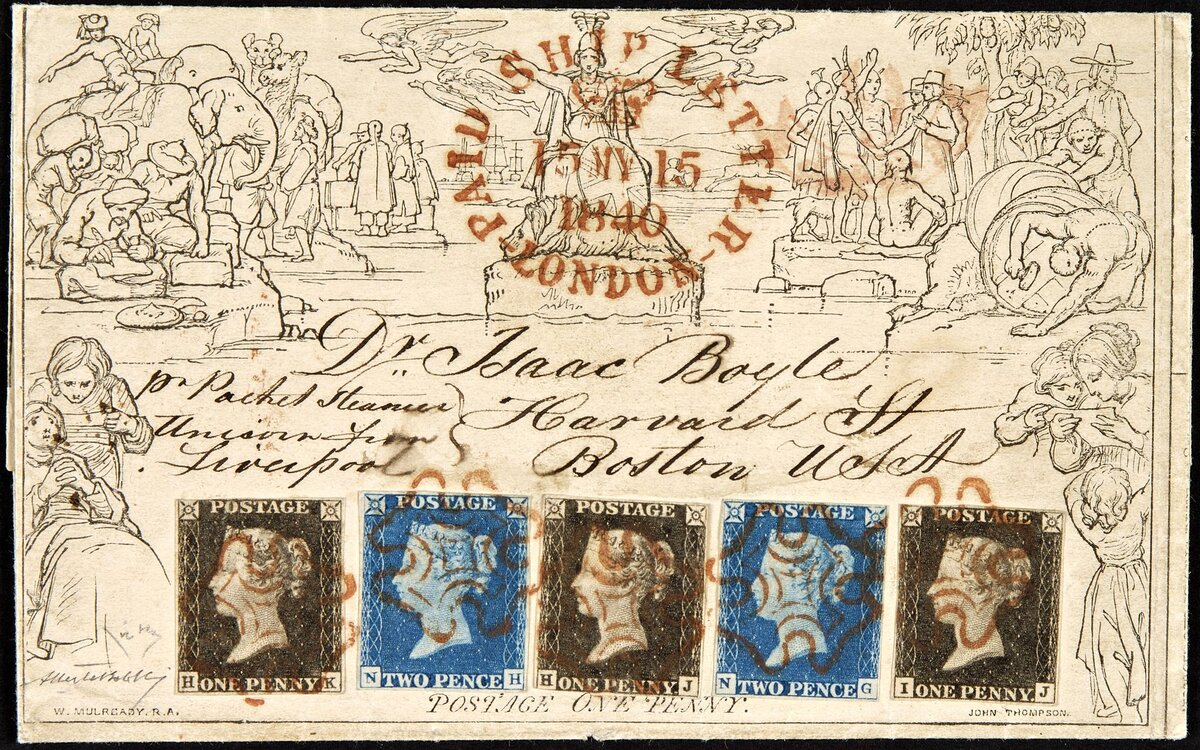 PAID SHIP LETTER
15 MY 15
1840
LONDON
Dr. Isaac Boyle
pr Packet Steamer
Unicorn from
Liverpool
Harvard St
Boston USA
POSTAGE
H ONE PENNY K
POSTAGE
N TWO PENCE H
POSTAGE
H ONE PENNY J
POSTAGE
N TWO PENCE G
POSTAGE
I ONE PENNY J
POSTAGE ONE PENNY.
W. MULREADY, R.A.
JOHN THOMPSON.